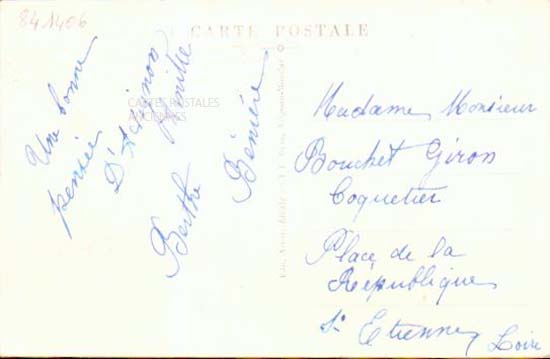 841406
CARTE POSTALE
CARTES POSTALES
ANCIENNES
Une bonne
pensée
D'Avignon
Famille
Berthe
Bénière
Madame Monsieur
Bouchet Giron
Coquetier
Place de la
République
St Etienne
Loire